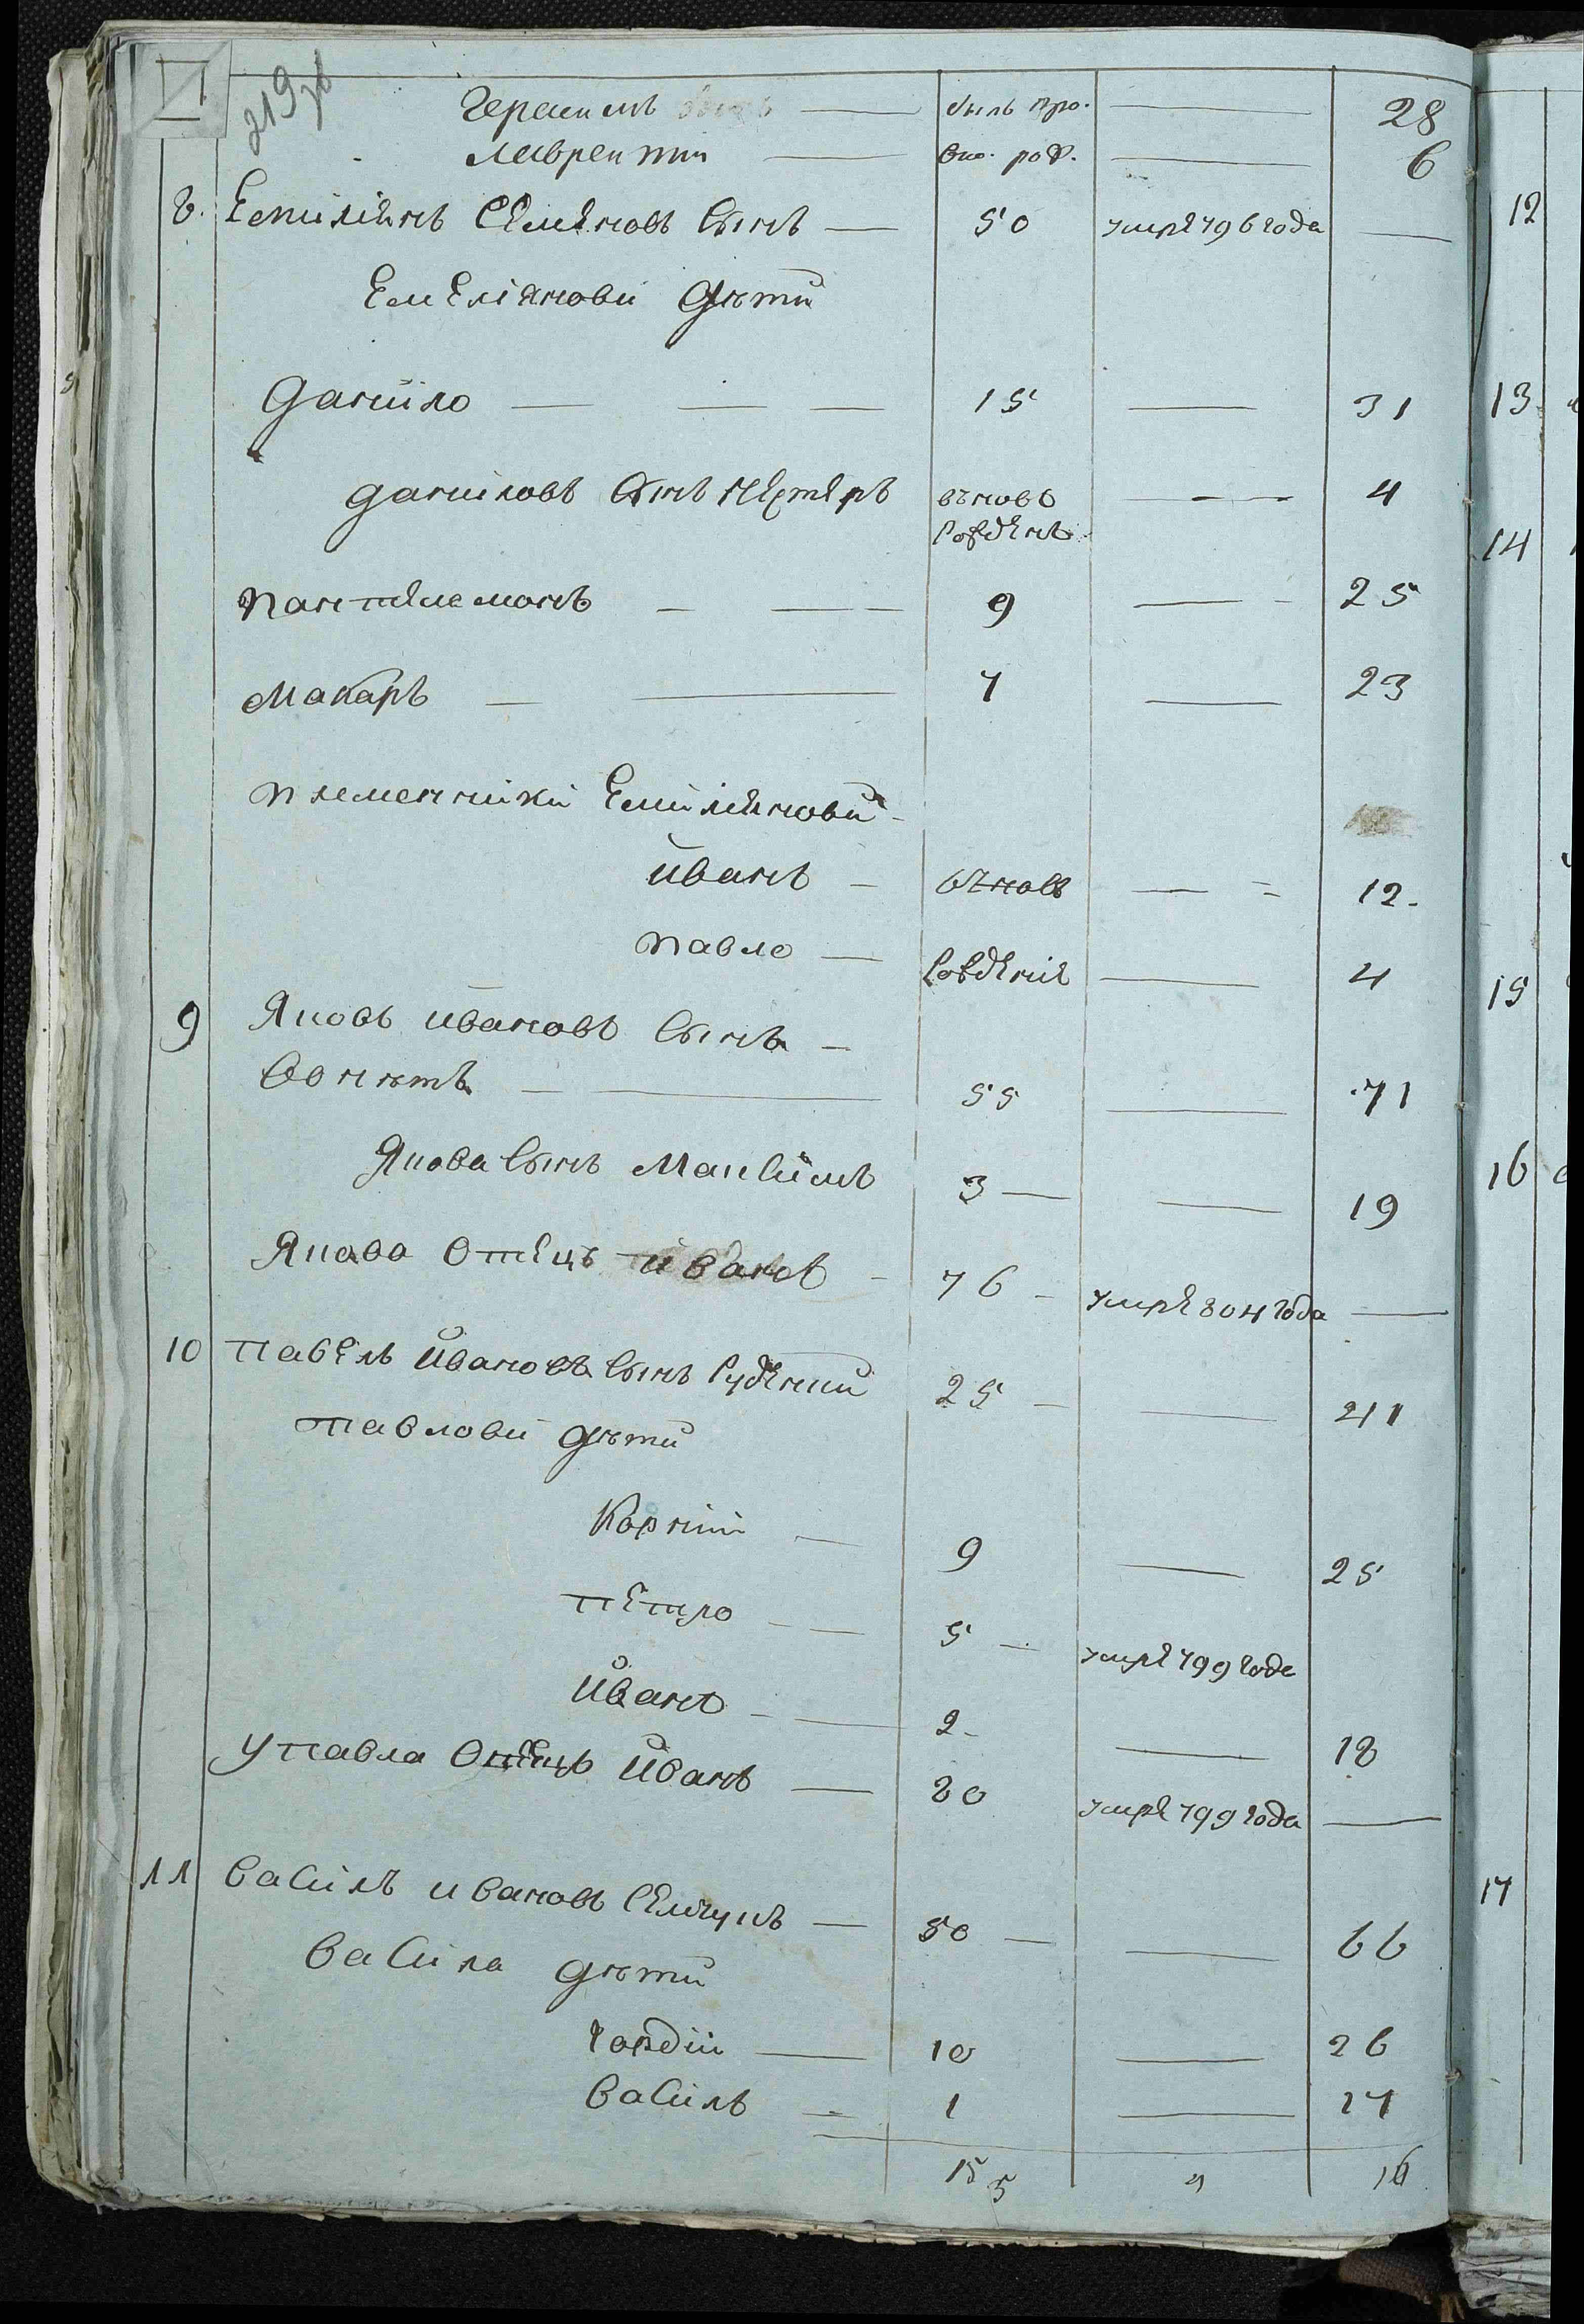 219 зв
Герасимъ — былъ про. — 28
Лаврентий — вно. род. — 6
8. Емилиянъ Семеновъ сынъ — 50 умре 796 года —
Емелиянови дѣти
Данило — — — 15 — 31
Даниловъ сынъ Нестеръ въновъ — - - 4
рожденъ
Пантелемонъ — — - 9 — - 25
Макаръ — — 7 — 23
племенники Емилиянови -
иванъ - вънов — = 12.
павло — рожденіе — 4
9 Яковъ ивановъ сынъ -
— — 55 — 71
Якова сынъ Максимъ 3 — — 19
Якова отецъ иванъ - 76 - умре 804 года —
10 павелъ ивановъ сынъ Руденкий 25 - — 41
павлови дѣти
Корний — 9 — 25
петро - — 5 — умре 799 годе
иванъ - — 2 - — 18
у павла отецъ иванъ — 80 умре 799 года —
11 василъ ивановъ — 50 — — 66
василя дѣти
гордій — 10 — 26
василъ — 1 — 17
155 4 16
12
13
14
15
16
17